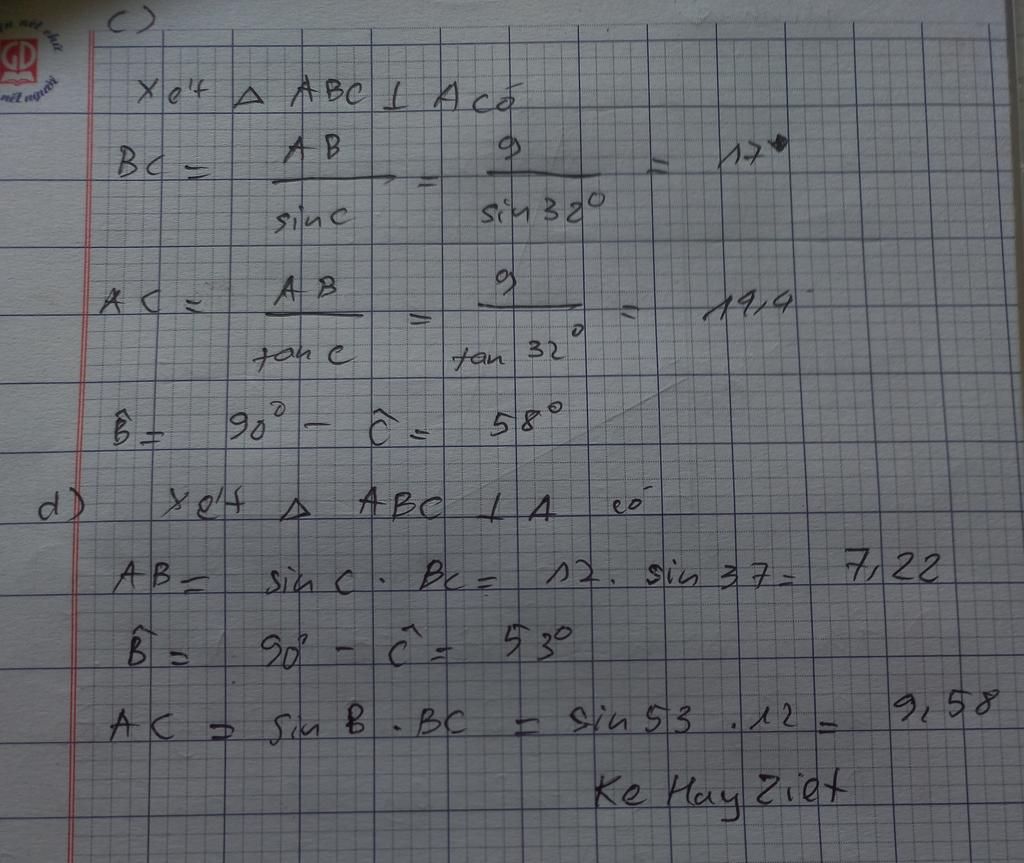 c)
GD
nét người
Xét △ ABC ⊥ A có
BC = AB / sin C = 9 / sin 32° = 17
AC = AB / tan C = 9 / tan 32° = 14,4
B̂ = 90° - Ĉ = 58°
d) Xét △ ABC ⊥ A có
AB = sin C . BC = 12. sin 37 = 7,22
B̂ = 90° - Ĉ = 53°
AC = sin B . BC = sin 53 . 12 = 9,58
Ke Hay Ziet